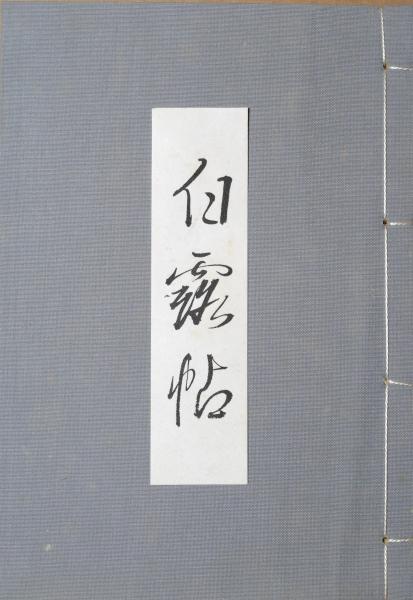 白露帖